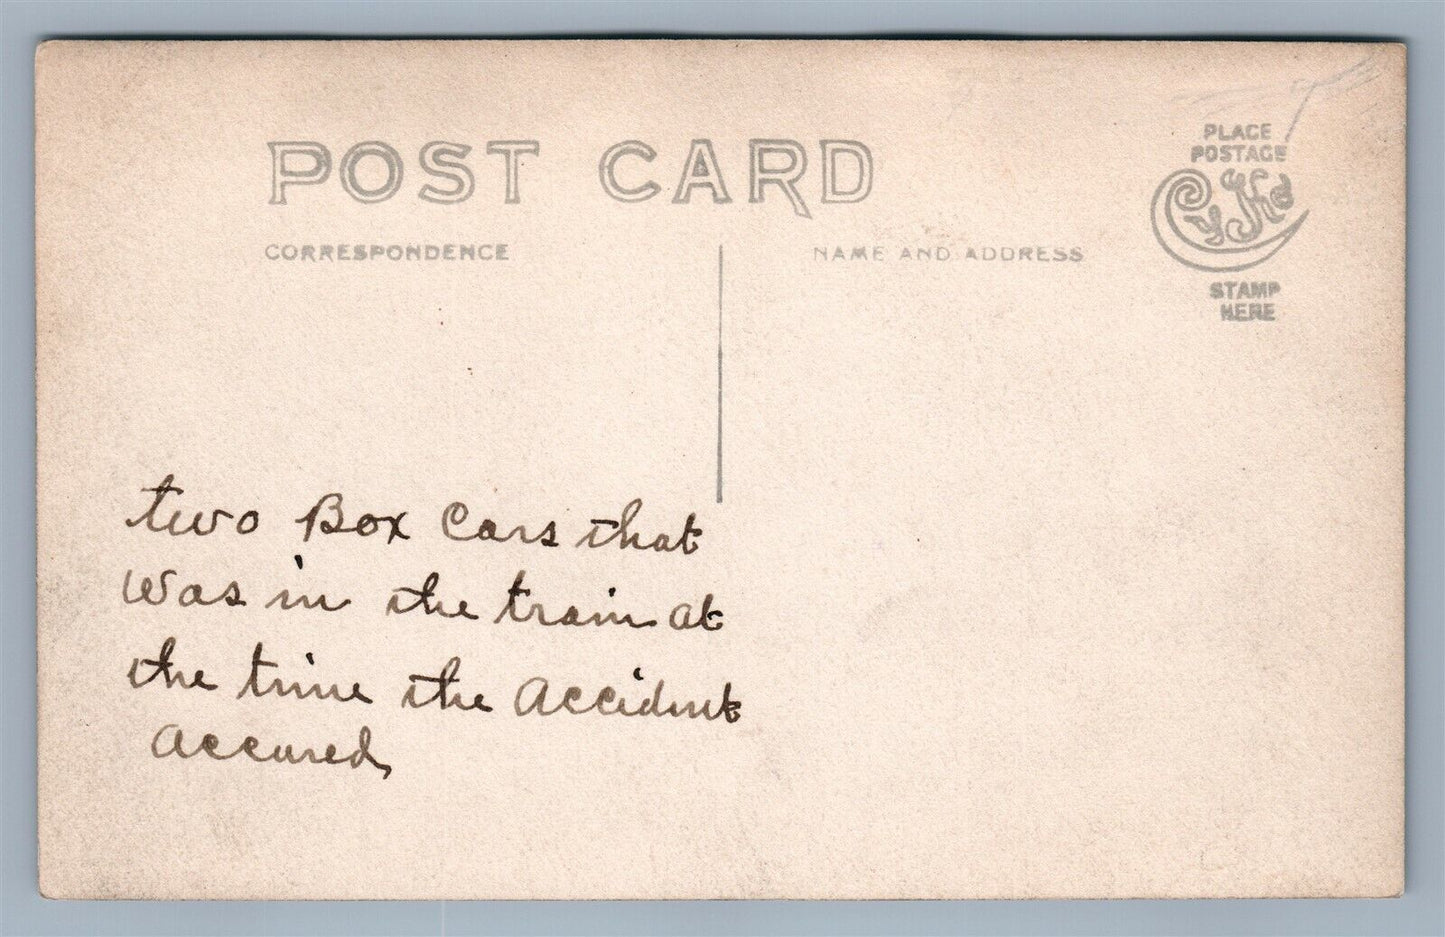 POST CARD
CORRESPONDENCE
NAME AND ADDRESS
PLACE
POSTAGE
Cyko
STAMP
HERE
two Box Cars that
was in the train at
the time the Accident
accured,